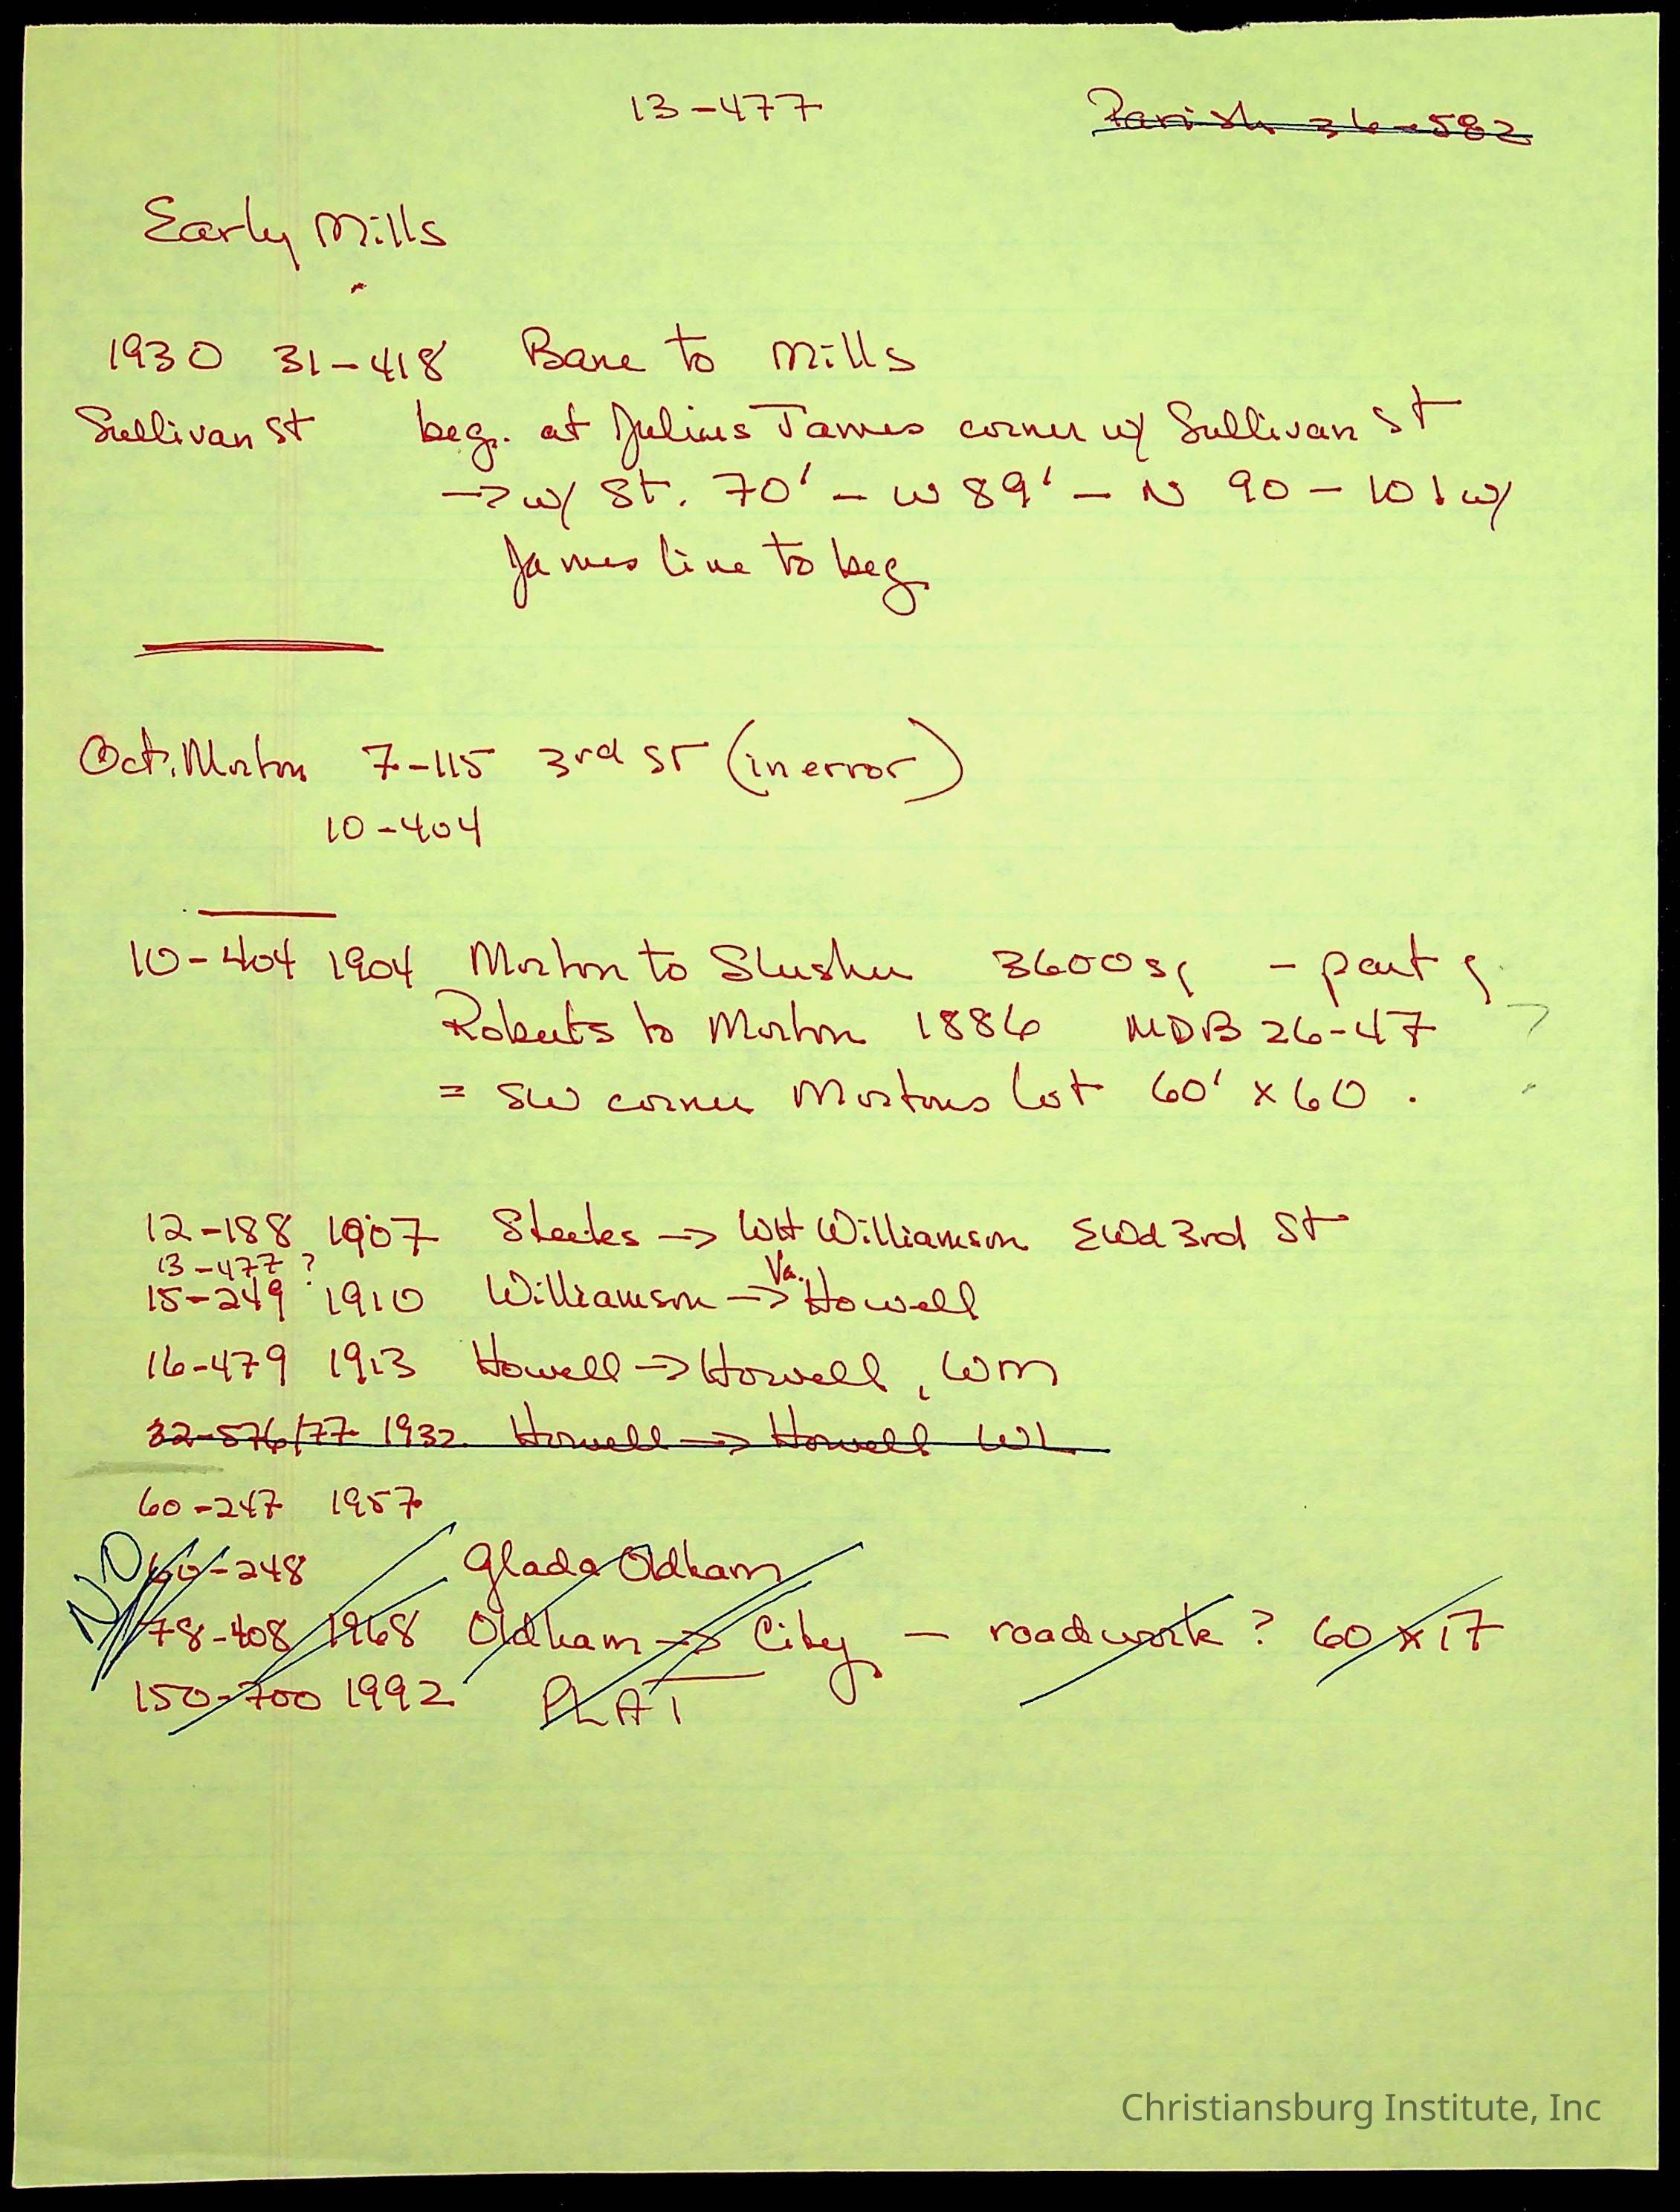 13-477
Parish 36-582
Early Mills
1930 31-418 Bane to Mills
Sullivan St beg. at Julius James corner w/ Sullivan St
→ w/ St. 70' - W 89' - N 90 - 101 w/
James line to beg.
Oct. Morton 7-115 3rd St (in error)
10-404
10-404 1904 Morton to Slusher 3600 sq - part of
Roberts to Morton 1886 MDB 26-47
= SW corner Mortons lot 60' x 60.
12-188 1907 Steeles → WH Williamson EWd 3rd St
13-477?
15-249 1910 Williamson → Va. Howell
16-479 1913 Howell → Howell, Wm
32-576/77 1932 Howell → Howell WL
60-247 1957
NO 60-248 Glada Oldham
78-408 1968 Oldham → City - roadwork? 60 x 17
150-700 1992 PLAT
Christiansburg Institute, Inc